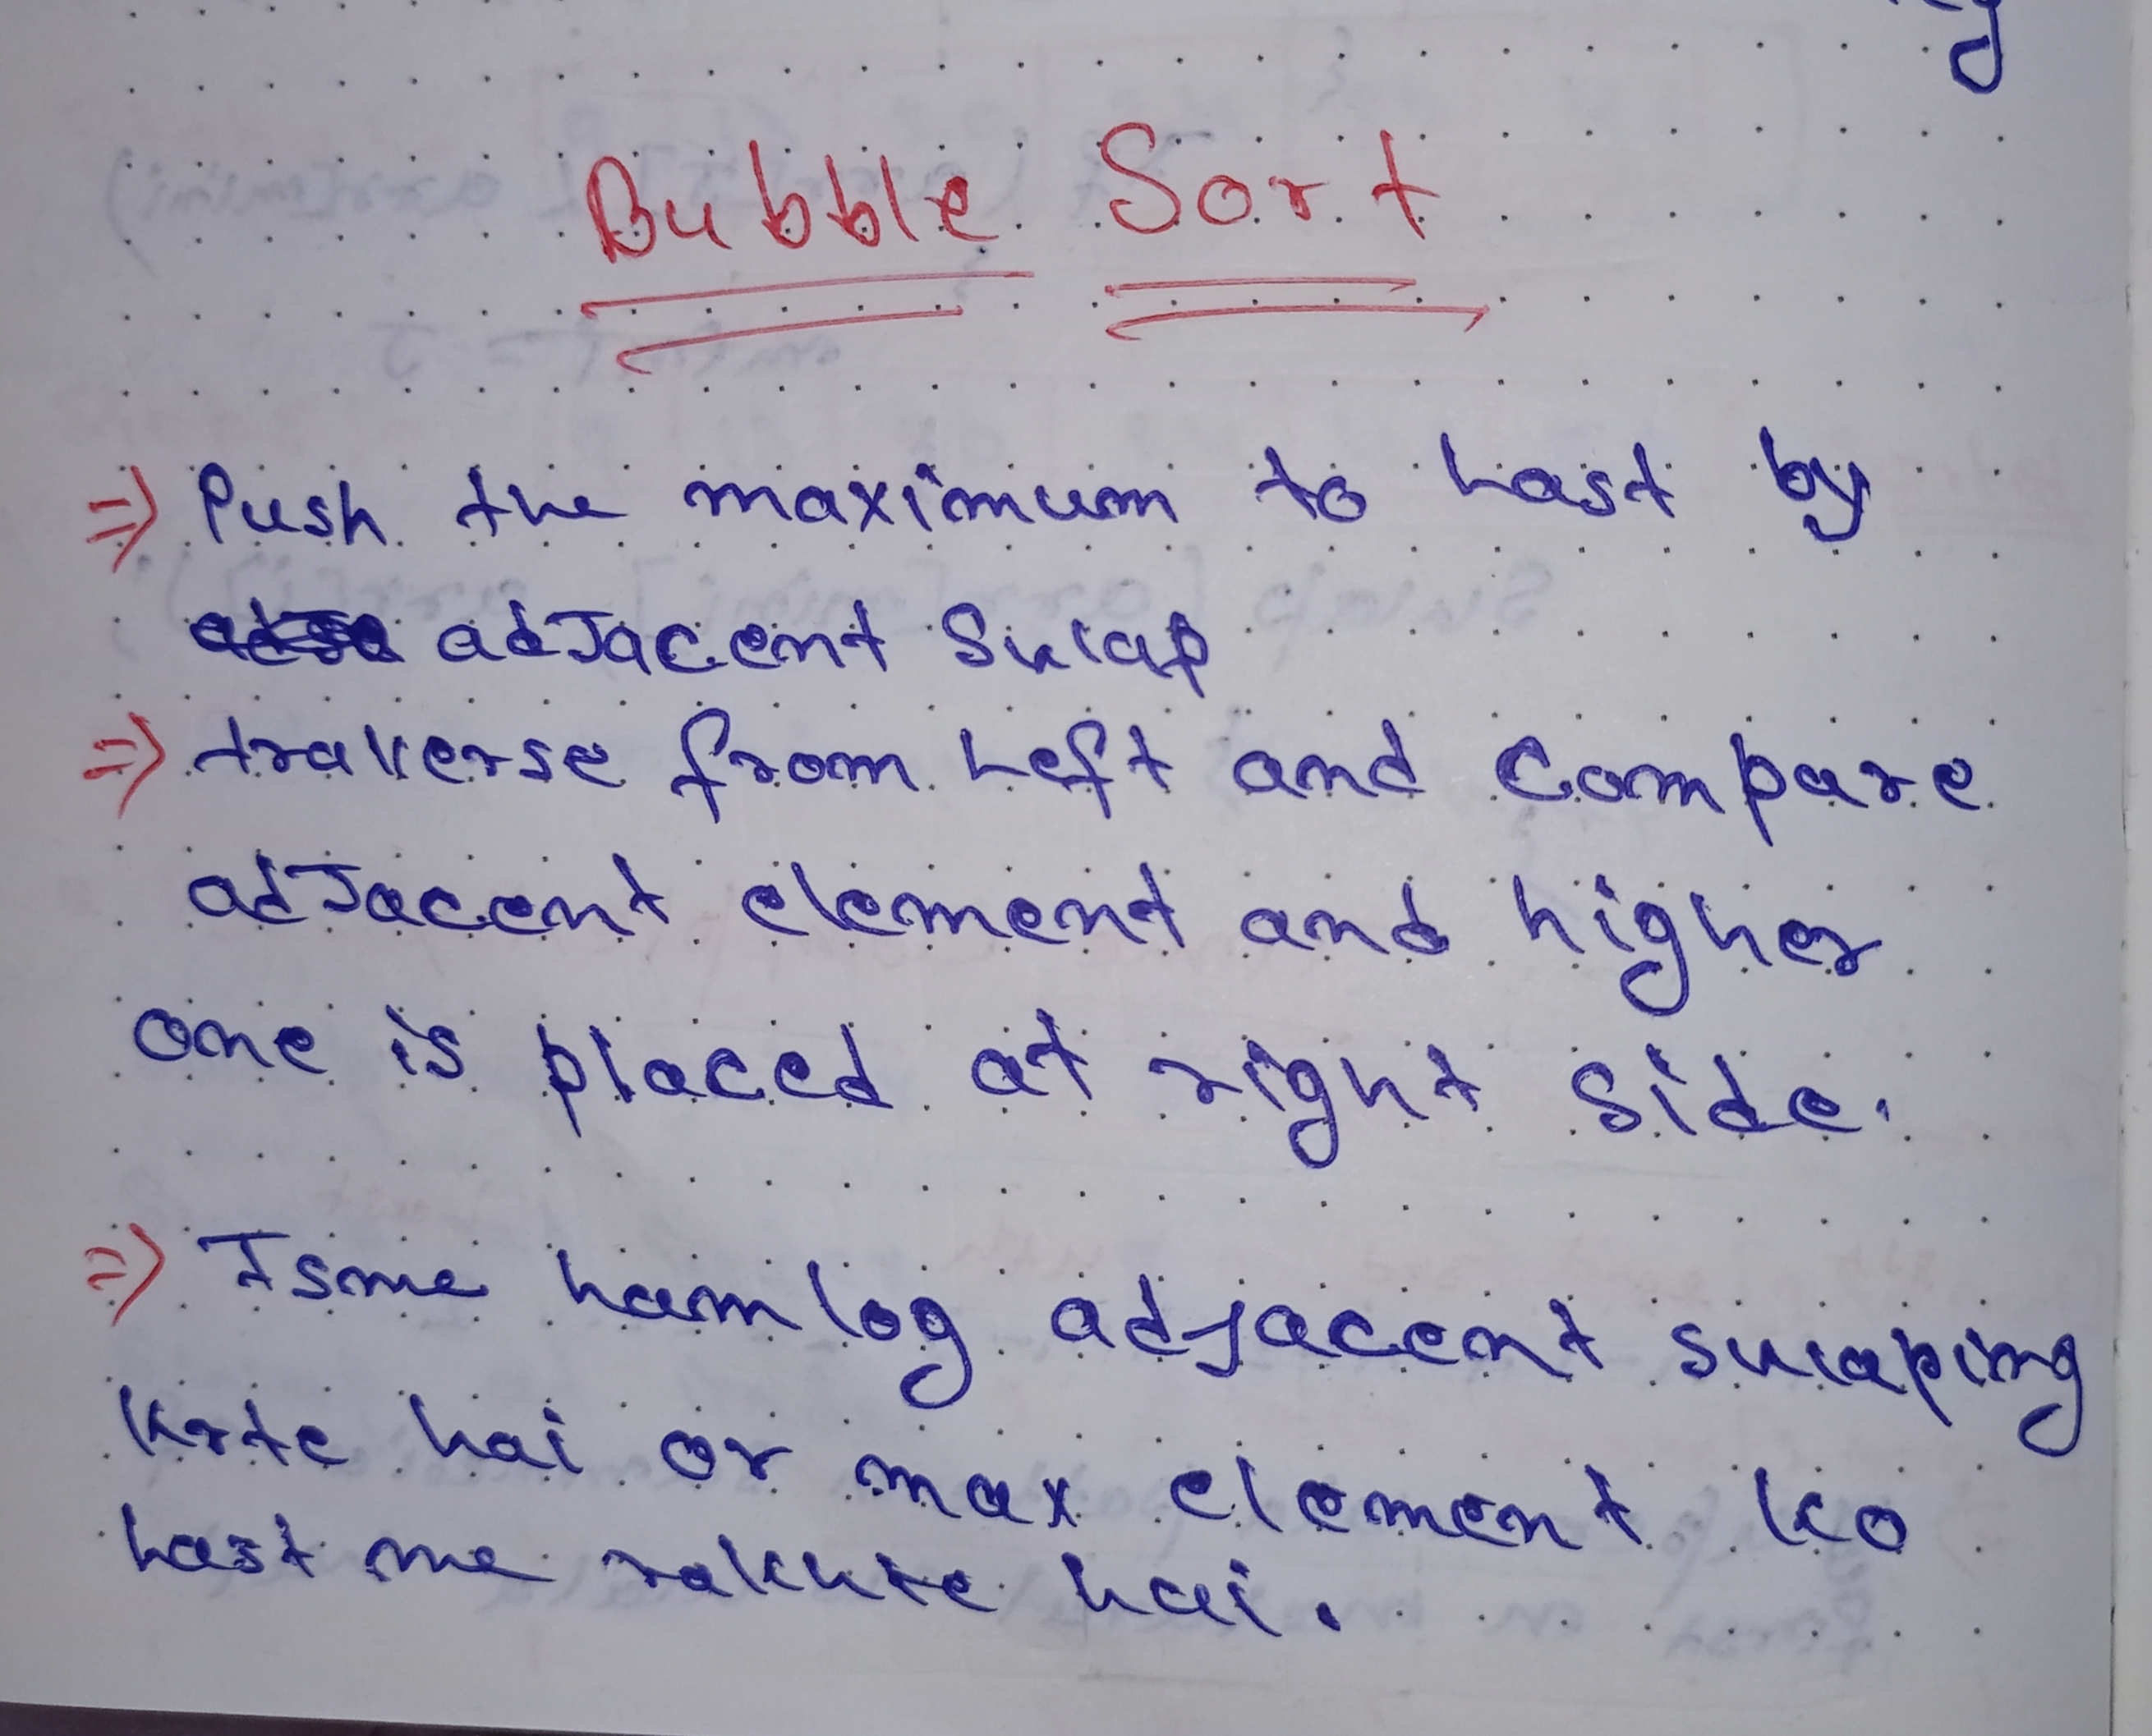 Bubble Sort
=> Push the maximum to Last by
adJacent Swap
=> traverse from Left and Compare
adJacent element and higher
one is placed at right side.
=> Isme hamlog adjacent swaping
krte hai or max element ko
Last me rakhte hai.